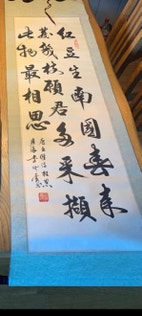 紅豆生南國春來
發幾枝願君多采擷
此物最相思
唐王維詩相思